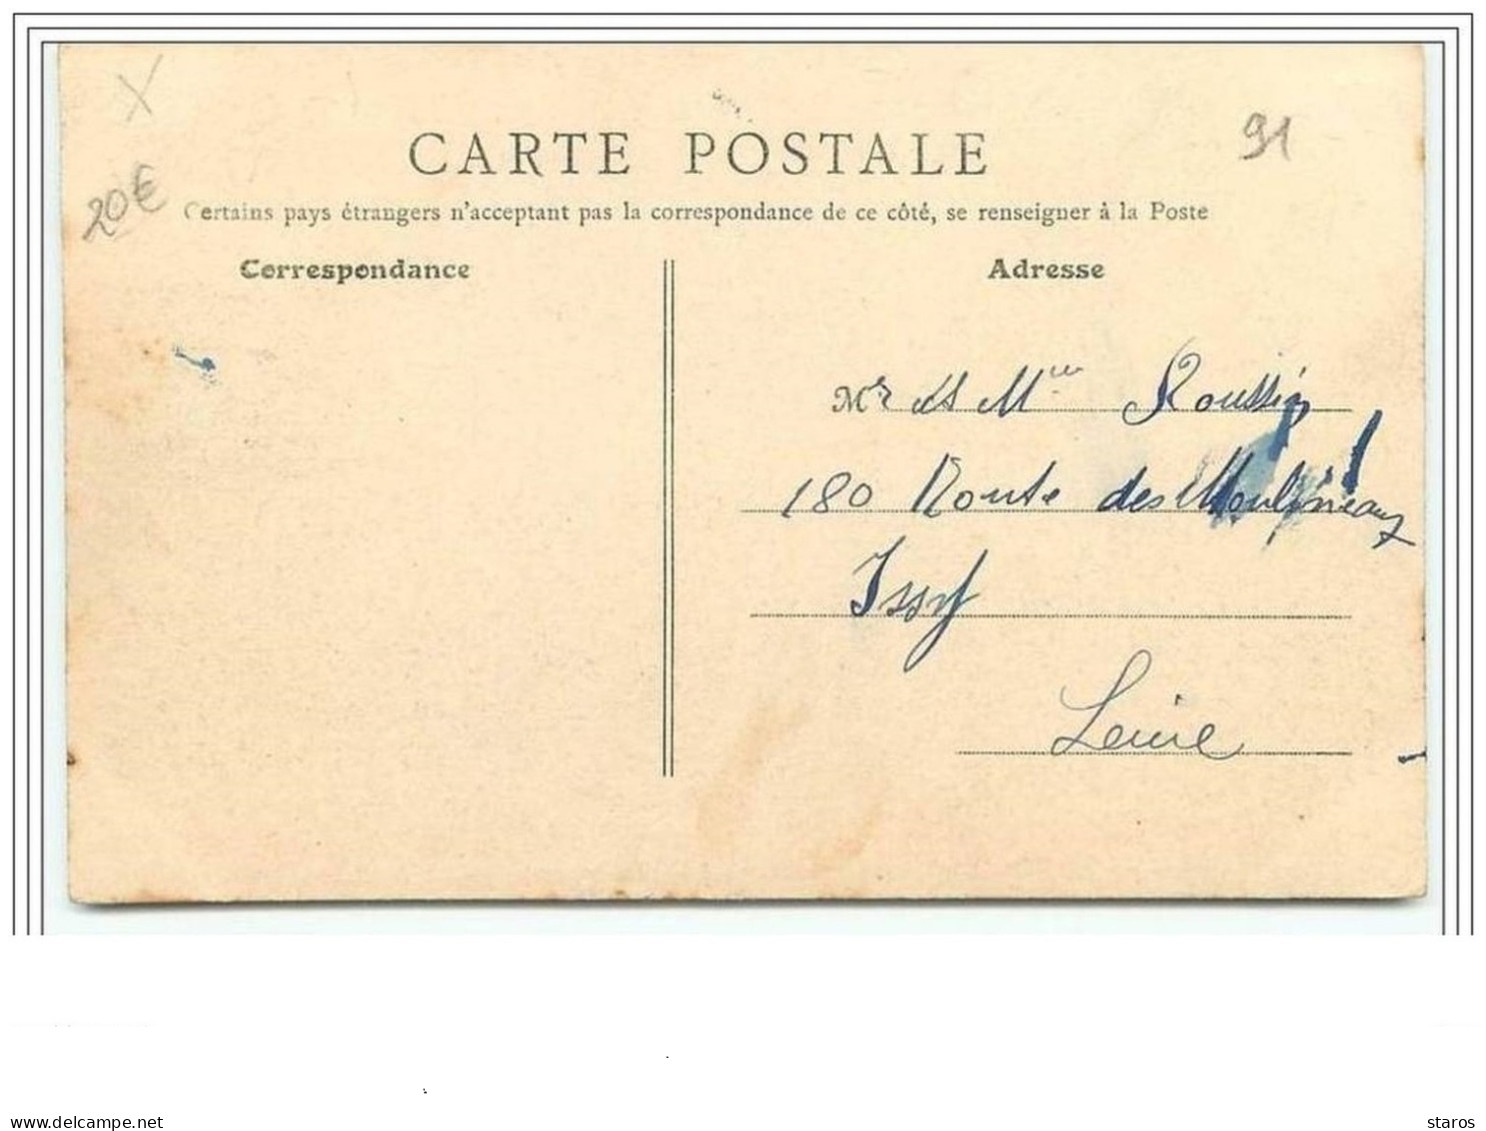 CARTE POSTALE
91
20€
Certains pays étrangers n'acceptant pas la correspondance de ce côté, se renseigner à la Poste
Correspondance
Adresse
Mr et Mme Roussin
180 Route des Moulineaux
Issy
Seine
delcampe.net
staros